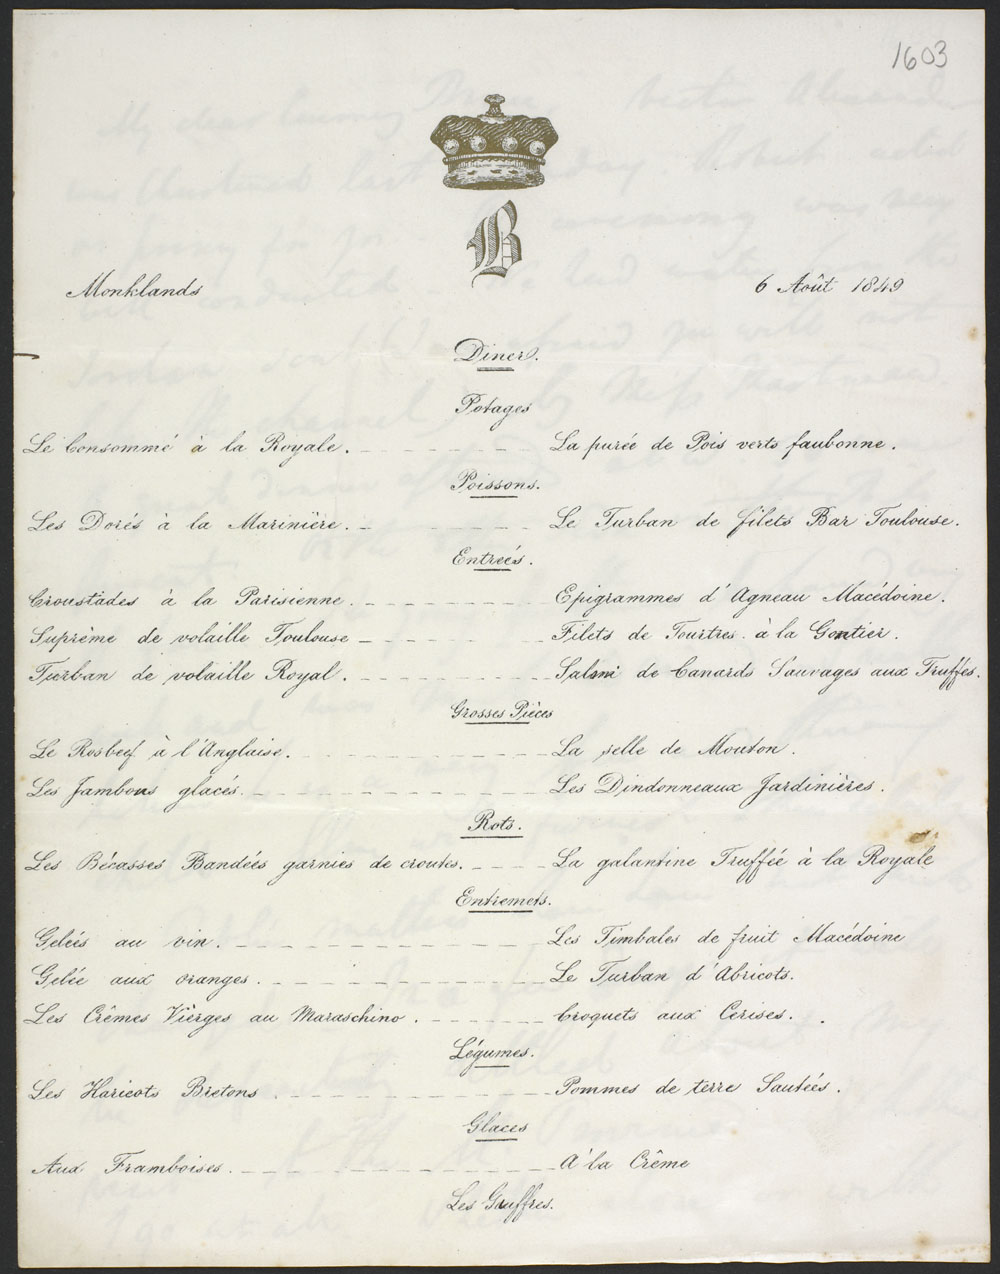 1603
B
Monklands 6 Août 1849
Diner.
Potages
Le Consommé à la Royale. La purée de Pois verts faubonne.
Poissons.
Les Dorés à la Marinière. Le Turban de filets Bar Toulouse.
Entreés.
Croustades à la Parisienne. Epigrammes d'Agneau Macédoine.
Suprème de volaille Toulouse Filets de Tourtres à la Gontier.
Turban de volaille Royal. Salmi de Canards Sauvages aux Truffés.
Grosses Pièces
Le Rosbeef à l'Anglaise. La selle de Mouton.
Les Jambons glacés. Les Dindonneaux Jardinières.
Rots.
Les Bécasses Bandées garnies de croutes. La galantine Trufféé à la Royale
Entremets.
Geleés au vin. Les Timbales de fruit Macédoine
Gelée aux oranges. Le Turban d'Abricots.
Les Crêmes Vièrges au Maraschino. Croquets aux Cerises.
Légumes.
Les Haricots Bretons Pommes de terre Sauteés.
Glaces
Aux Framboises. A la Crême
Les Gauffres.